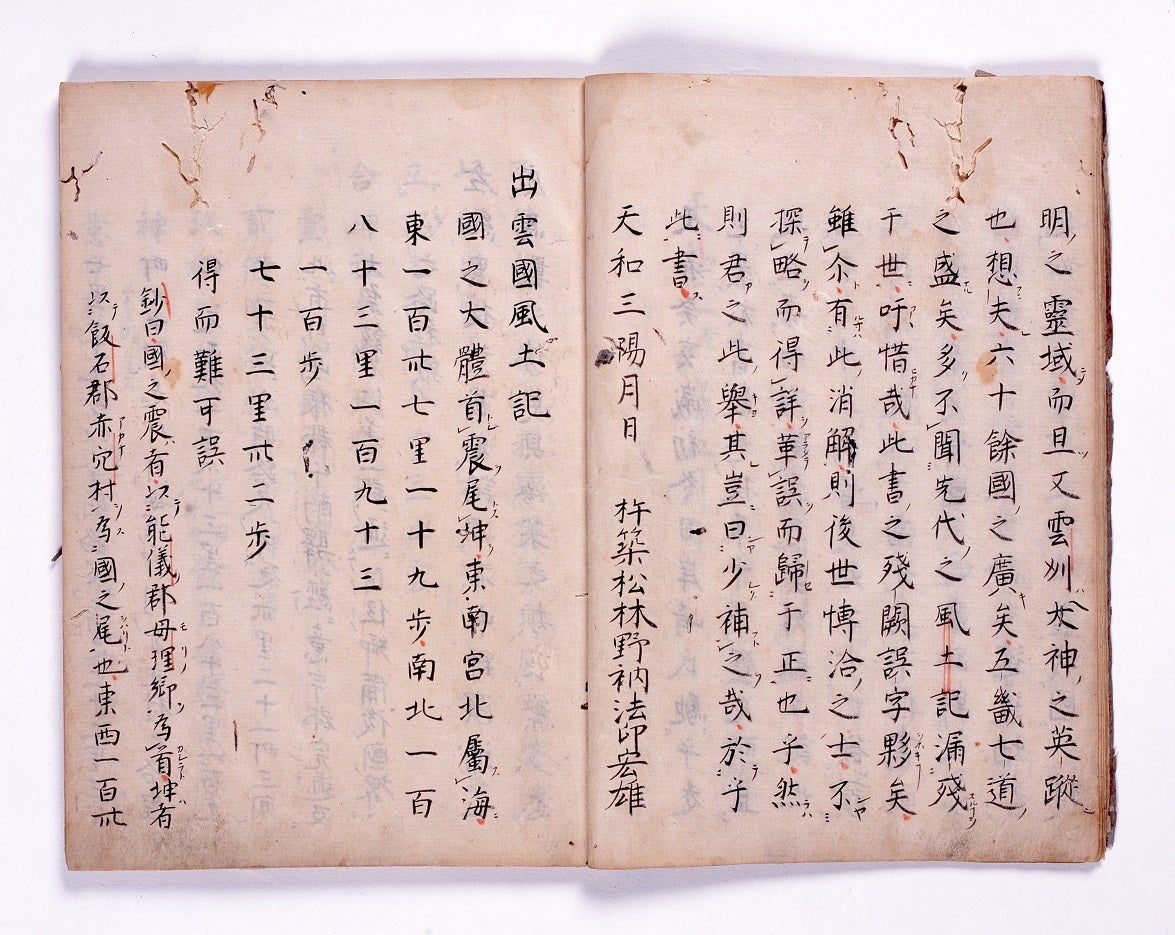 明之靈域而且又雲刕大神之英蹤
也想夫六十餘國之廣矣五畿七道
之盛矣多不聞先代之風土記漏殘
于世吁惜哉此書之殘闕誤字夥矣
雖尒有此消解則後世博洽之士不
探略而得詳革誤而歸于正也乎然
則君之此舉其豈曰少補之哉於乎
此書
天和三陽月日 杵築松林野衲法印宏雄
出雲國風土記
國之大體首震尾坤東南宮北屬海
東一百卅七里一十九歩南北一百
八十三里一百九十三
一百歩
七十三里卅二歩
得而難可誤
鈔曰國之震者以能儀郡母理郷為首坤者
以飯石郡赤穴村為國之尾也東西一百卅